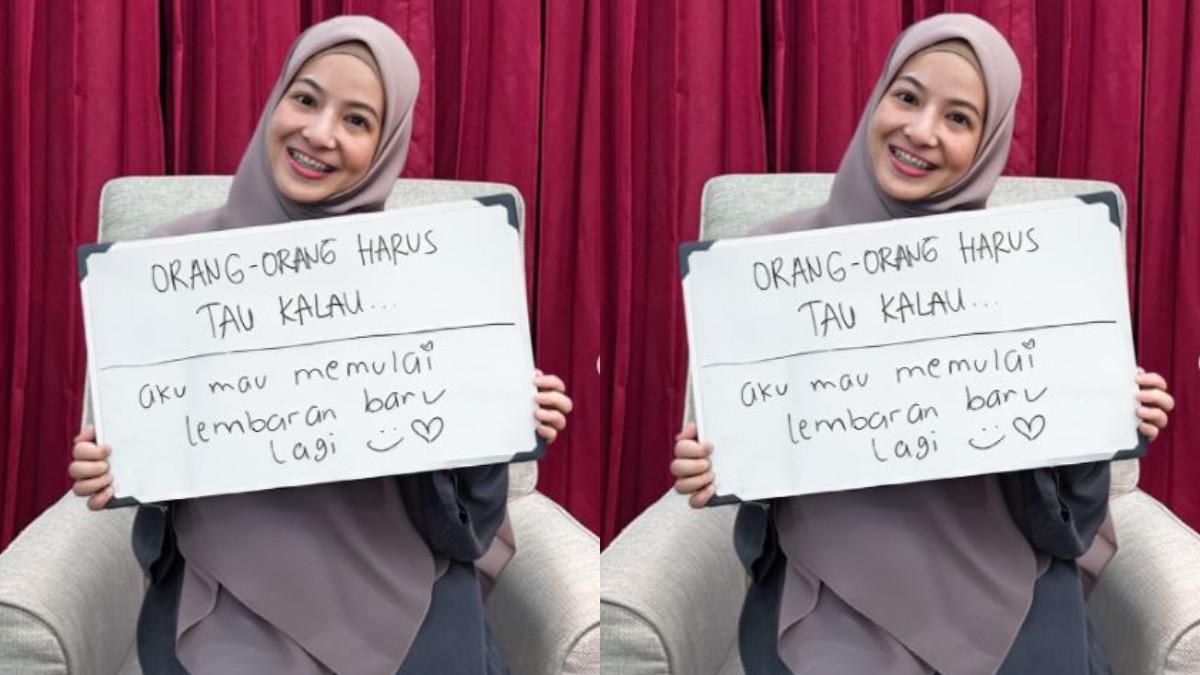 ORANG-ORANG HARUS
TAU KALAU...
aku mau memulai
lembaran baru
lagi
ORANG-ORANG HARUS
TAU KALAU...
aku mau memulai
lembaran baru
lagi